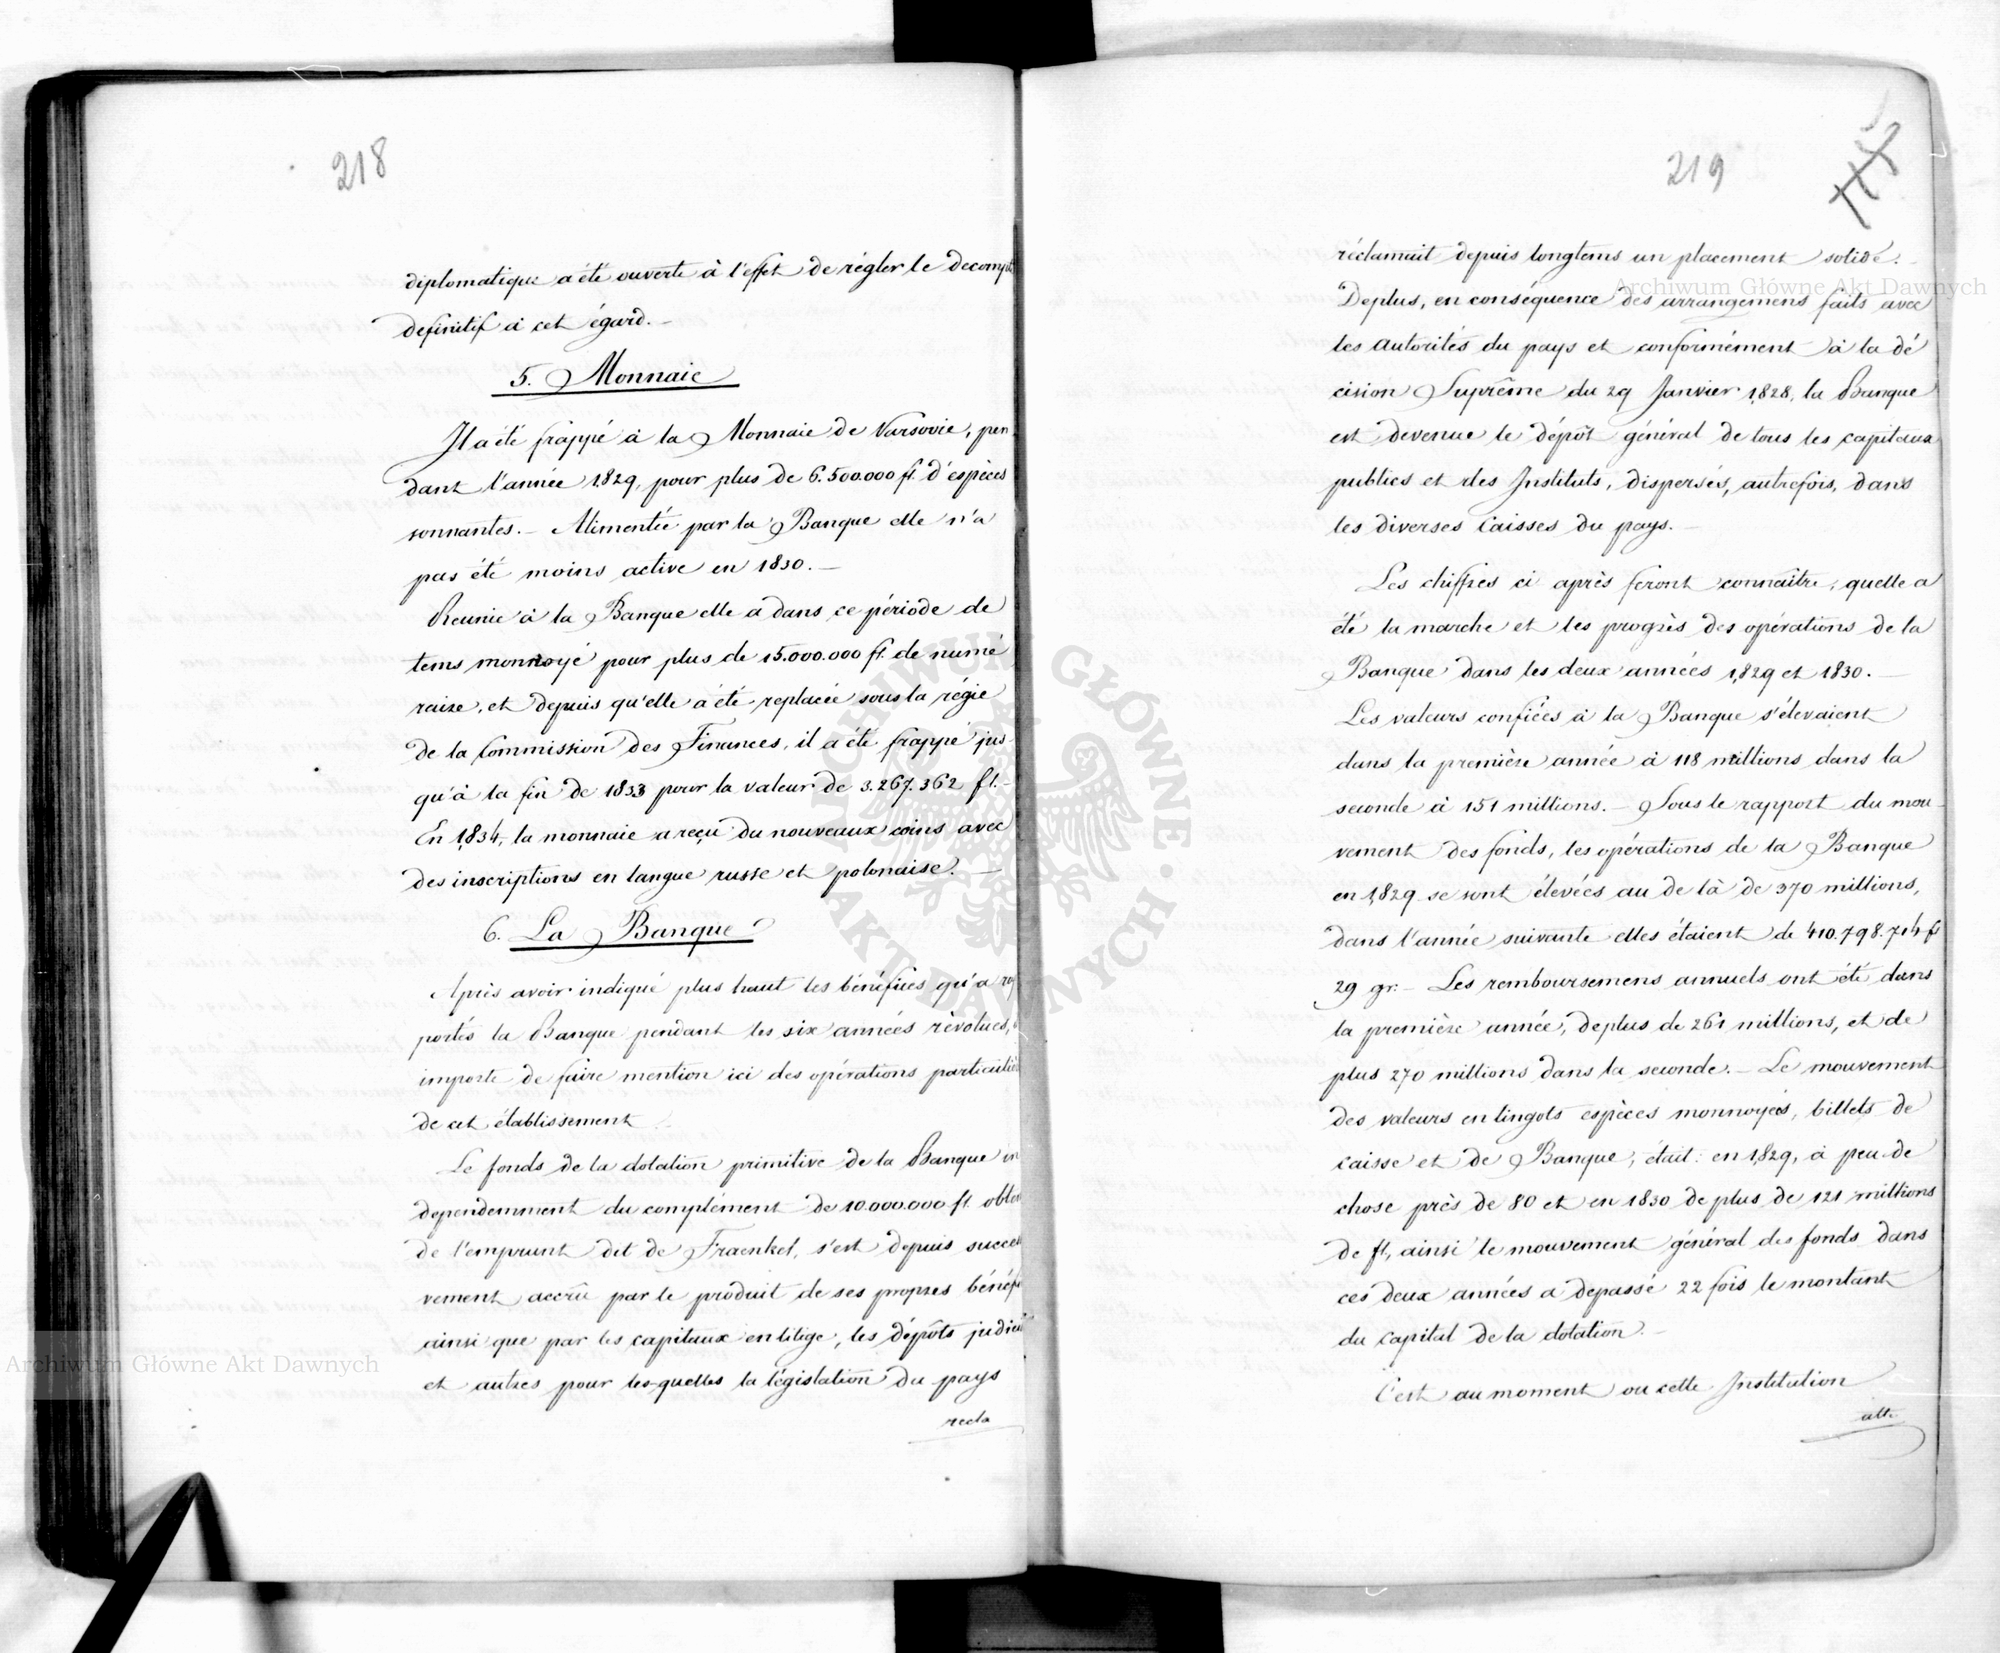 218
diplomatique a été ouverte à l'effet de régler le decompt
definitif à cet égard. —
5. Monnaie
Il a été frappé à la Monnaie de Varsovie, pen
dant l'année 1829, pour plus de 6.500.000 fl. d'espèces
sonnantes. — Alimentée par la Banque elle n'a
pas été moins active en 1830. —
Reunie à la Banque elle a dans ce période de
tems monnoyé pour plus de 15.000.000 fl. de numé
raire, et depuis qu'elle a été replacée sous la régie
de la Commission des Finances, il a été frappé jus
qu'à la fin de 1833 pour la valeur de 3.267.362 fl. —
En 1834, la monnaie a reçu du nouveaux coins avec
des inscriptions en langue russe et polonaise. —
6. La Banque
Après avoir indiqué plus haut les bénéfices qu'a
portés la Banque pendant les six années révolues,
importe de faire mention ici des opérations particuliè
de cet établissement
Le fonds de la dotation primitive de la Banque in
dependemment du complément de 10.000.000 fl. obten
de l'emprunt dit de Fraenkel, s'est depuis succes
vement accrû par le produit de ses propres bénéfi
ainsi que par les capitaux en litige, les dépôts judici
et autres pour les-quelles la législation du pays
recla
219
réclamait depuis longtems un placement solide. —
Deplus, en conséquence des arrangemens faits avec
les autorités du pays et conformément à la dé
cision Suprême du 29 Janvier 1828, la Banque
est devenue le dépôt général de tous les capitaux
publics et des Instituts, dispersés, autrefois, dans
les diverses Caisses du pays. —
Les chiffres ci après feront connaître, quelle a
été la marche et les progrès des opérations de la
Banque dans les deux années 1829 et 1830. —
Les valeurs confiées à la Banque s'élevaient
dans la première année à 118 millions dans la
seconde à 151 millions. — Sous le rapport du mou
vement des fonds, les opérations de la Banque
en 1829 se sont élevées au de là de 370 millions,
dans l'année suivante elles étaient de 410.798.714 fl
29 gr: — Les remboursemens annuels ont été dans
la première année, deplus de 261 millions, et de
plus 270 millions dans la seconde. — Le mouvement
des valeurs en lingots espèces monnoyées, billets de
caisse et de Banque, était: en 1829, à peu de
chose près de 80 et en 1830 de plus de 121 millions
de fl, ainsi le mouvement général des fonds dans
ces deux années a depassé 22 fois le montant
du capital de la dotation. —
C'est au moment ou cette Institution
Archiwum Główne Akt Dawnych
Archiwum Główne Akt Dawnych
ARCHIWUM GŁÓWNE · AKT DAWNYCH ·